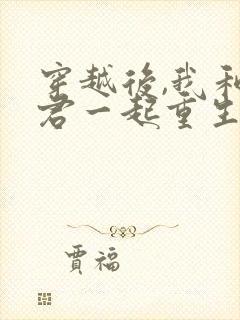 穿越後,我和
君一起重生
賈福